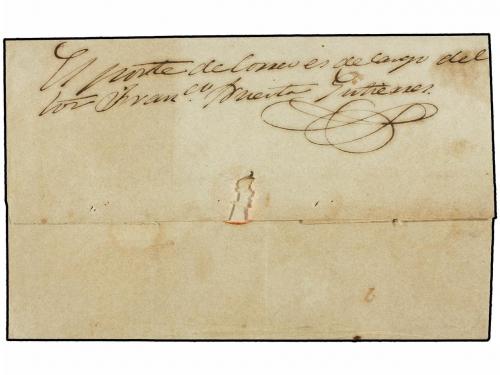 El porte de Correos es de cargo del
Sor Franco. Huerta Gutierres.